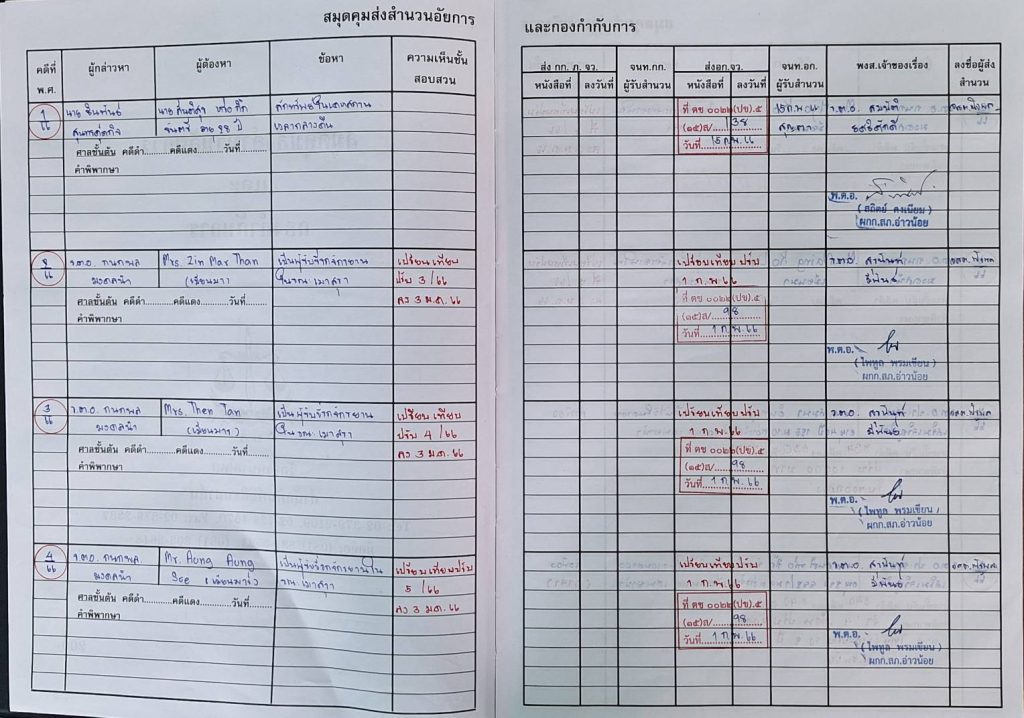 สมุดคุมส่งสำนวนอัยการ
คดีที่ พ.ศ.
ผู้กล่าวหา
ผู้ต้องหา
ข้อหา
ความเห็นชั้นสอบสวน
1/66
นาย
นาย
อายุ 28 ปี
ลักทรัพย์ในเคหสถาน
เวลากลางคืน
ศาลชั้นต้น คดีดำ...........คดีแดง..........วันที่..........
คำพิพากษา
2/66
ร.ต.อ. กนกพล
มงคลนำ
Mrs. Zin Mar Than
(เมียนมา)
เป็นผู้ขับขี่รถจักรยาน
ในขณะเมาสุรา
เปรียบเทียบ
ปรับ 3/66
ลว 3 ม.ค. 66
ศาลชั้นต้น คดีดำ...........คดีแดง..........วันที่..........
คำพิพากษา
3/66
ร.ต.อ. กนกพล
มงคลนำ
Mrs. Then Tan
(เมียนมา)
เป็นผู้ขับขี่รถจักรยาน
ในขณะเมาสุรา
เปรียบเทียบ
ปรับ 4/66
ลว 3 ม.ค. 66
ศาลชั้นต้น คดีดำ...........คดีแดง..........วันที่..........
คำพิพากษา
4/66
ร.ต.อ. กนกพล
มงคลนำ
Mr. Aung Aung
(เมียนมา)
เป็นผู้ขับขี่รถจักรยานใน
ขณะเมาสุรา
เปรียบเทียบปรับ
5/66
ลว 3 ม.ค. 66
ศาลชั้นต้น คดีดำ...........คดีแดง..........วันที่..........
คำพิพากษา
และกองกำกับการ
ส่ง กก. ภ. จว.
หนังสือที่
ลงวันที่
จนท.กก.
ผู้รับสำนวน
ส่งอก.จว.
หนังสือที่
ลงวันที่
จนท.อก.
ผู้รับสำนวน
พงส.เจ้าของเรื่อง
ลงชื่อผู้ส่งสำนวน
ที่ ตช ๐๐๒๒(ปข).๕
(๑๕)ส/ 138
วันที่ 15 ก.พ. 66
15 ก.พ. 66
ร.ต.อ. สมบัติ
พ.ต.อ.
(สถิตย์ คงเนียม)
ผกก.สภ.อ่าวน้อย
เปรียบเทียบปรับ
1 ก.พ. 66
ที่ ตช ๐๐๒๒(ปข).๕
(๑๕)ส/ 98
วันที่ 1 ก.พ. 66
ร.ต.อ.
พ.ต.อ.
(ไพทูล พรมเขียน)
ผกก.สภ.อ่าวน้อย
เปรียบเทียบปรับ
1 ก.พ. 66
ที่ ตช ๐๐๒๒(ปข).๕
(๑๕)ส/ 98
วันที่ 1 ก.พ. 66
ร.ต.อ.
พ.ต.อ.
(ไพทูล พรมเขียน)
ผกก.สภ.อ่าวน้อย
เปรียบเทียบปรับ
1 ก.พ. 66
ที่ ตช ๐๐๒๒(ปข).๕
(๑๕)ส/ 98
วันที่ 1 ก.พ. 66
ร.ต.อ.
พ.ต.อ.
(ไพทูล พรมเขียน)
ผกก.สภ.อ่าวน้อย